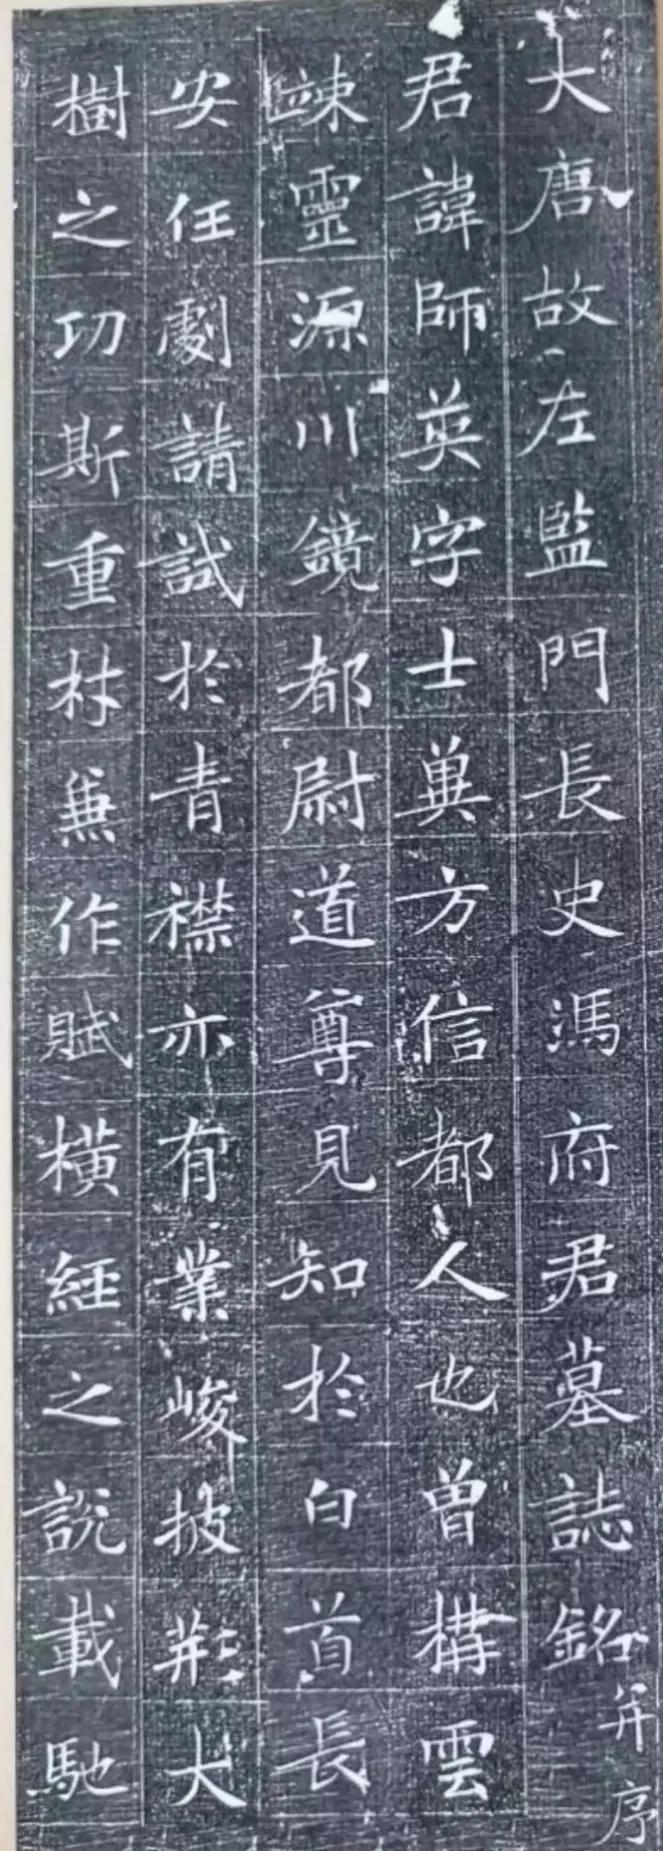 大唐故左監門長史馮府君墓誌銘并序
君諱師英字士冀方信都人也曾構雲
竦靈源川鏡都尉道尊見知於白首長
安任劇請試於青襟亦有業峻披荊大
樹之功斯重材兼作賦橫經之說載馳